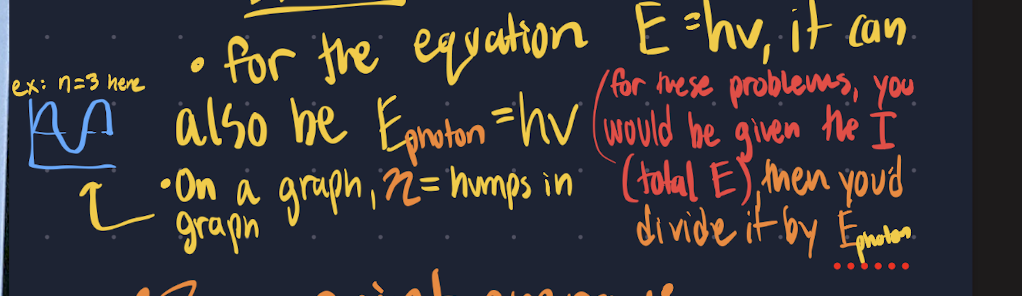 • for the equation E=hν, it can
ex: n=3 here
also be Ephoton=hν
(for these problems, you
would be given the I
(total E), then you'd
divide it by Ephoton
• On a graph, n= humps in
graph